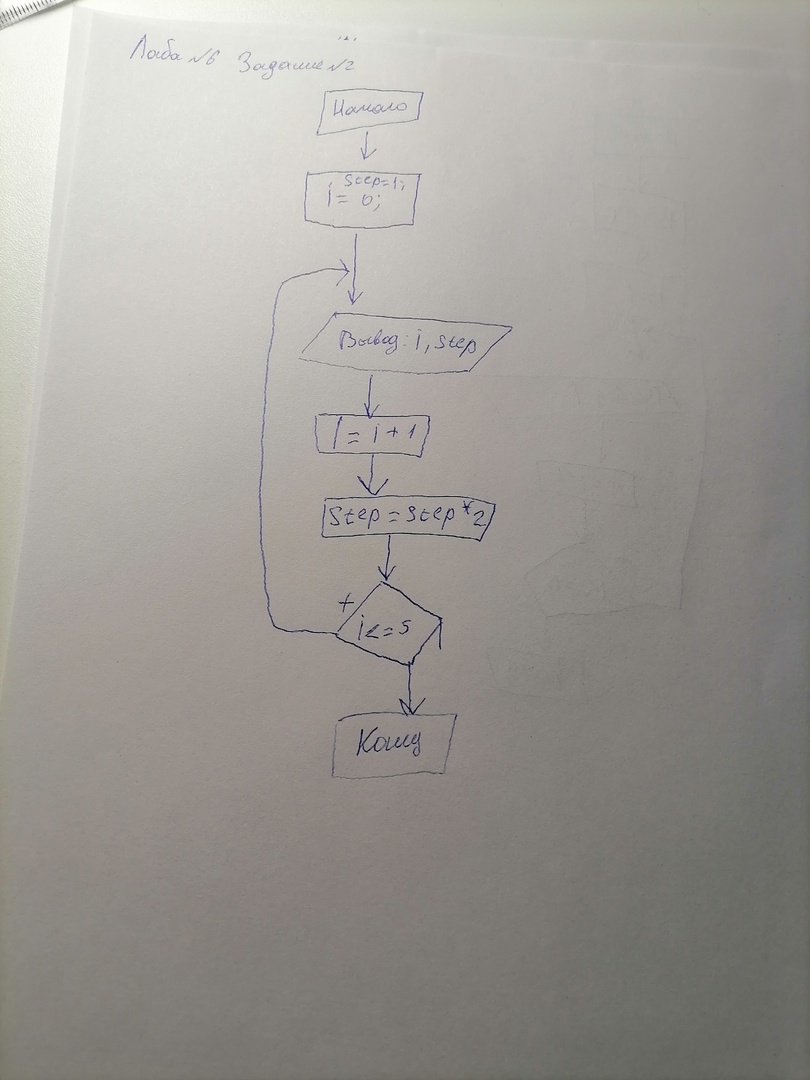 Лаба №6 Задание №2
Начало
Step=1;
i= 0;
Вывод: i, step
i = i + 1
Step = step*2
+
i<=5
Конец